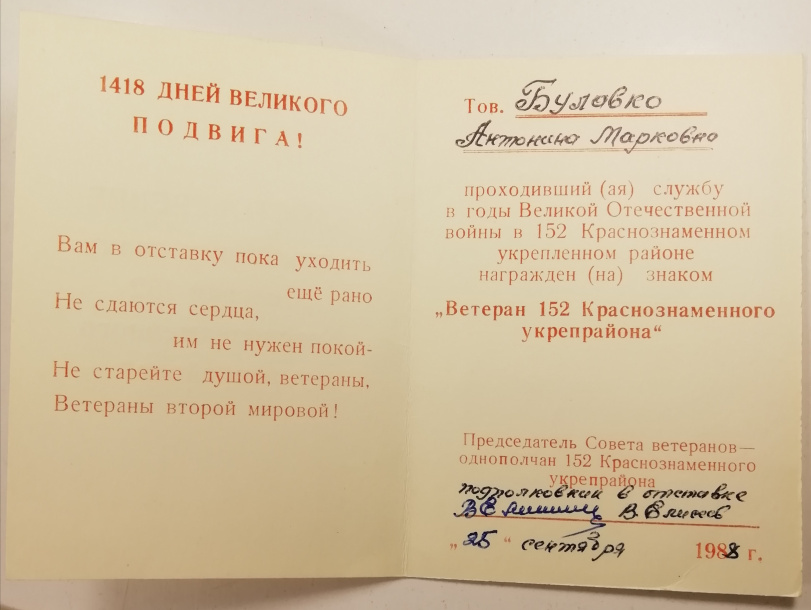 1418 ДНЕЙ ВЕЛИКОГО
ПОДВИГА!
Вам в отставку пока уходить
ещё рано
Не сдаются сердца,
им не нужен покой-
Не старейте душой, ветераны,
Ветераны второй мировой!
Тов. Булавко
Антонина Марковна
проходивший (ая) службу
в годы Великой Отечественной
войны в 152 Краснознаменном
укрепленном районе
награжден (на) знаком
„Ветеран 152 Краснознаменного
укрепрайона“
Председатель Совета ветеранов—
однополчан 152 Краснознаменного
укрепрайона
подполковник в отставке
„25“ сентября 1988 г.